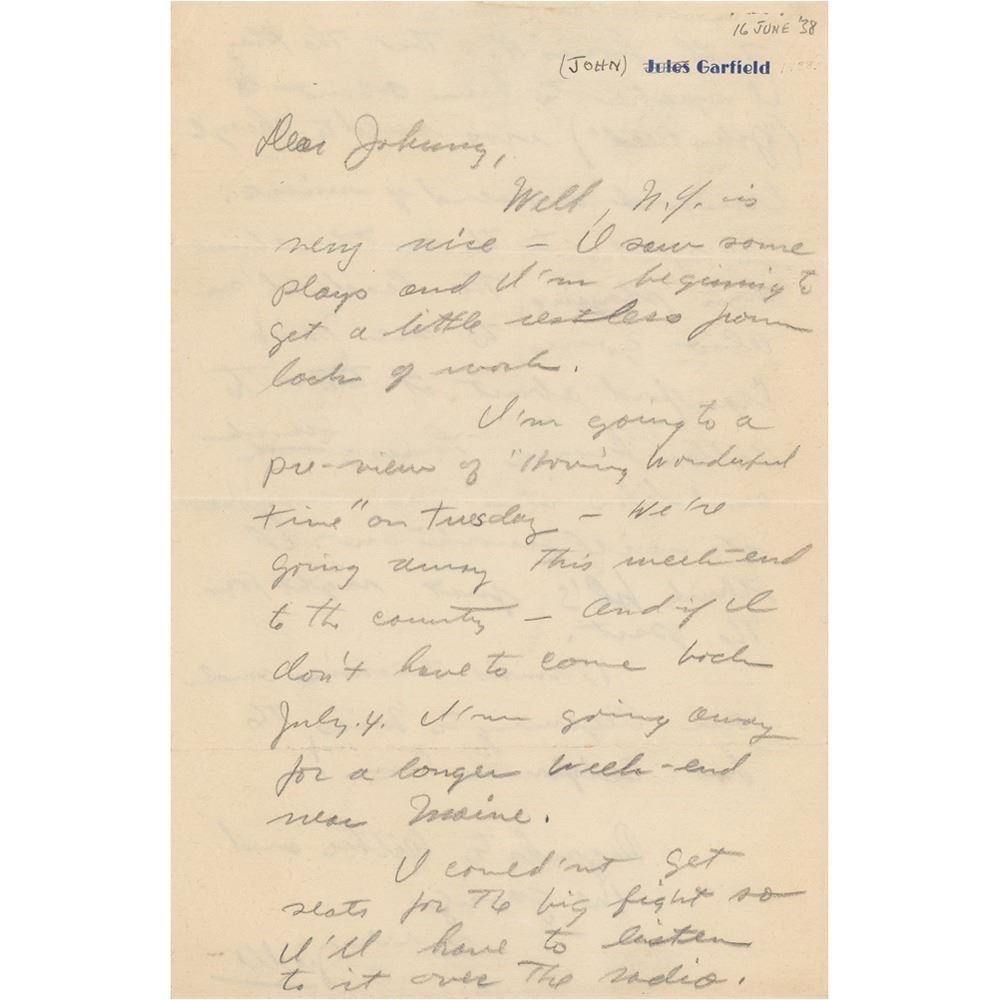 16 JUNE '38
(JOHN) Jules Garfield
Dear Johnny,
Well, N.Y. is
very nice – I saw some
plays and I'm beginning to
get a little restless from
lack of work.
I'm going to a
pre-view of "Having Wonderful
time" on Tuesday – We're
going away this week-end
to the country – and if I
don't have to come back
July. 4. I'm going away
for a longer week-end
near Maine.
I could'nt get
seats for the big fight so
I'll have to listen
to it over the radio.